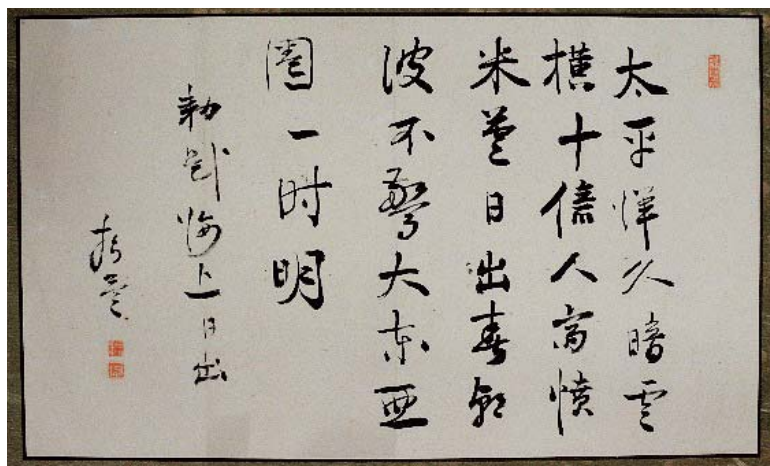 太平洋久暗雲
横十億人高憤
米英日出春朝
波不驚大東亜
圏一時明
勅題海上日出